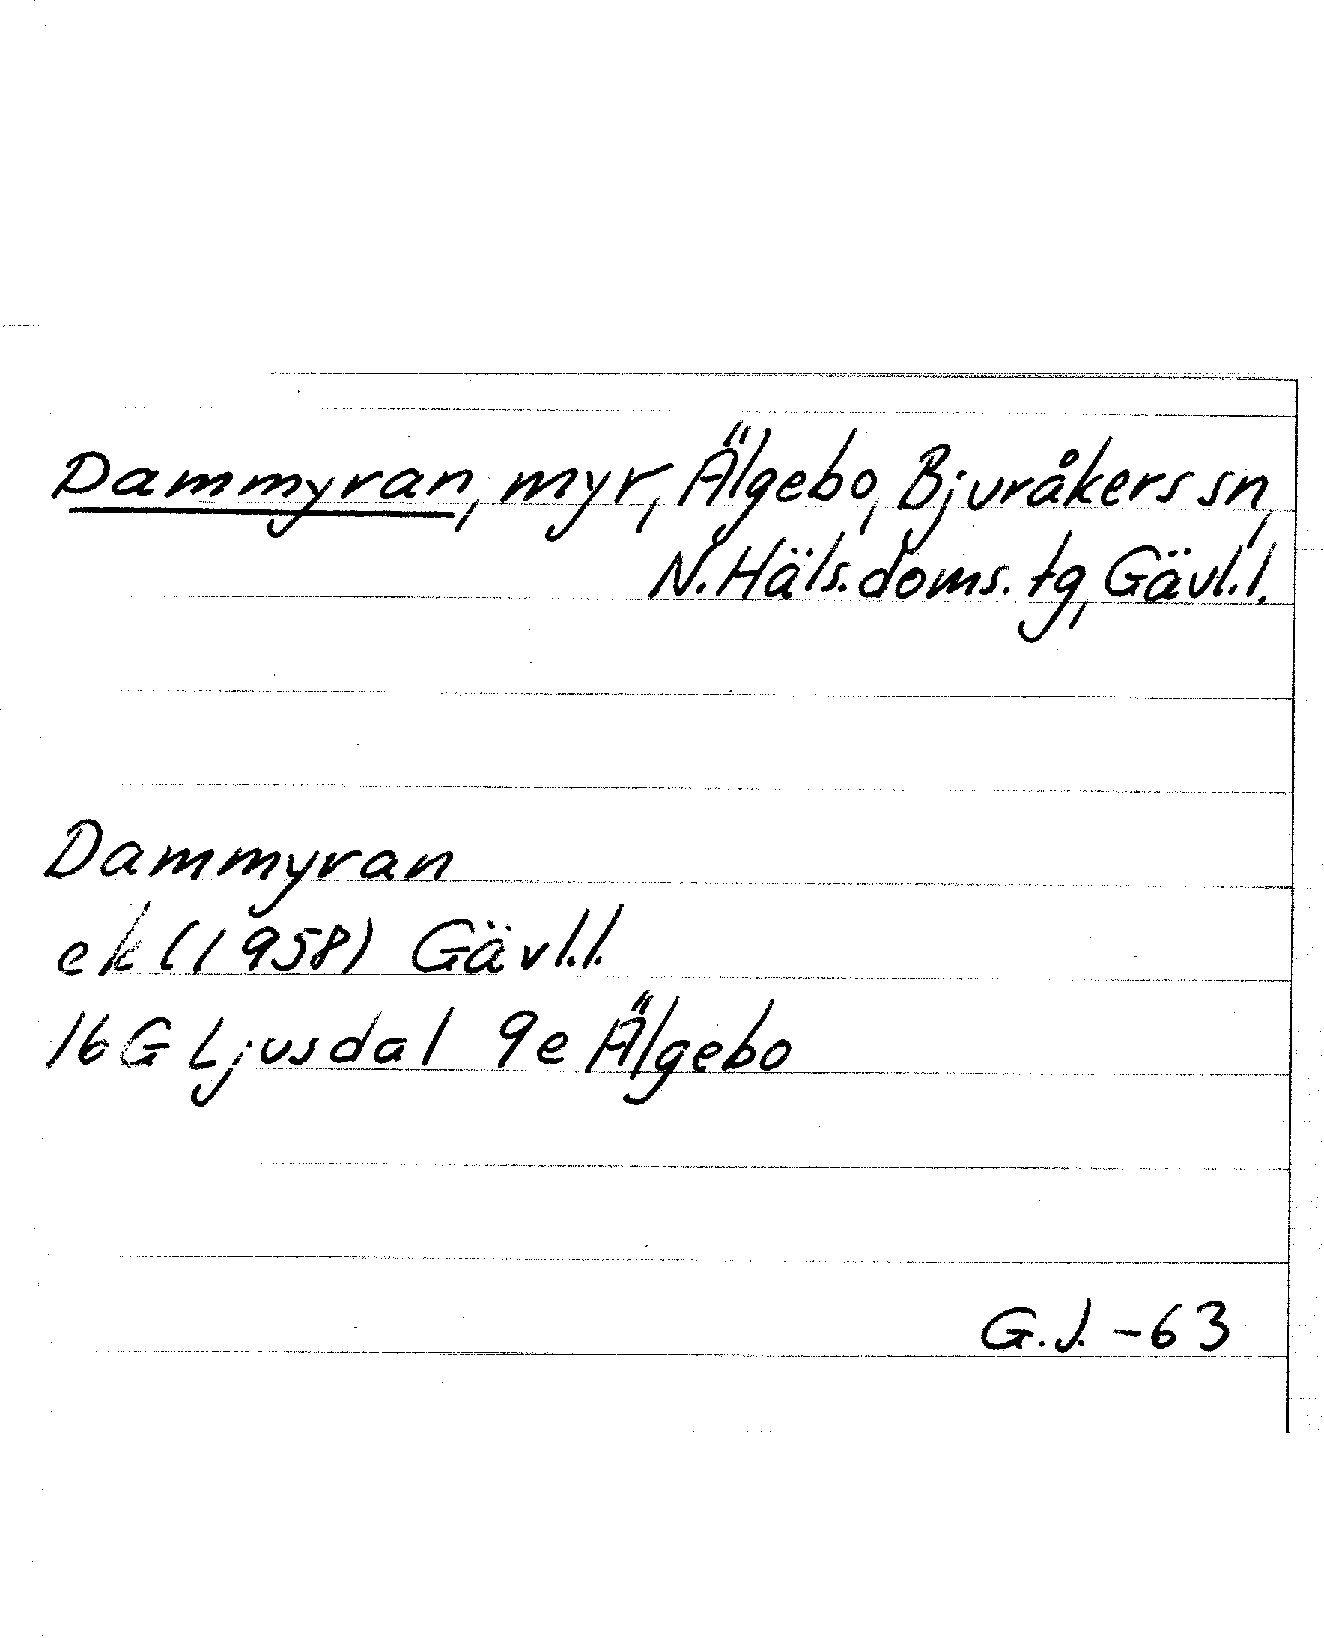 Dammyran, myr, Älgebo, Bjuråkers sn,
N. Häls. doms. tg, Gävl. l.
Dammyran
ek (1958) Gävl. l.
16G Ljusdal 9e Älgebo
G.J. -63